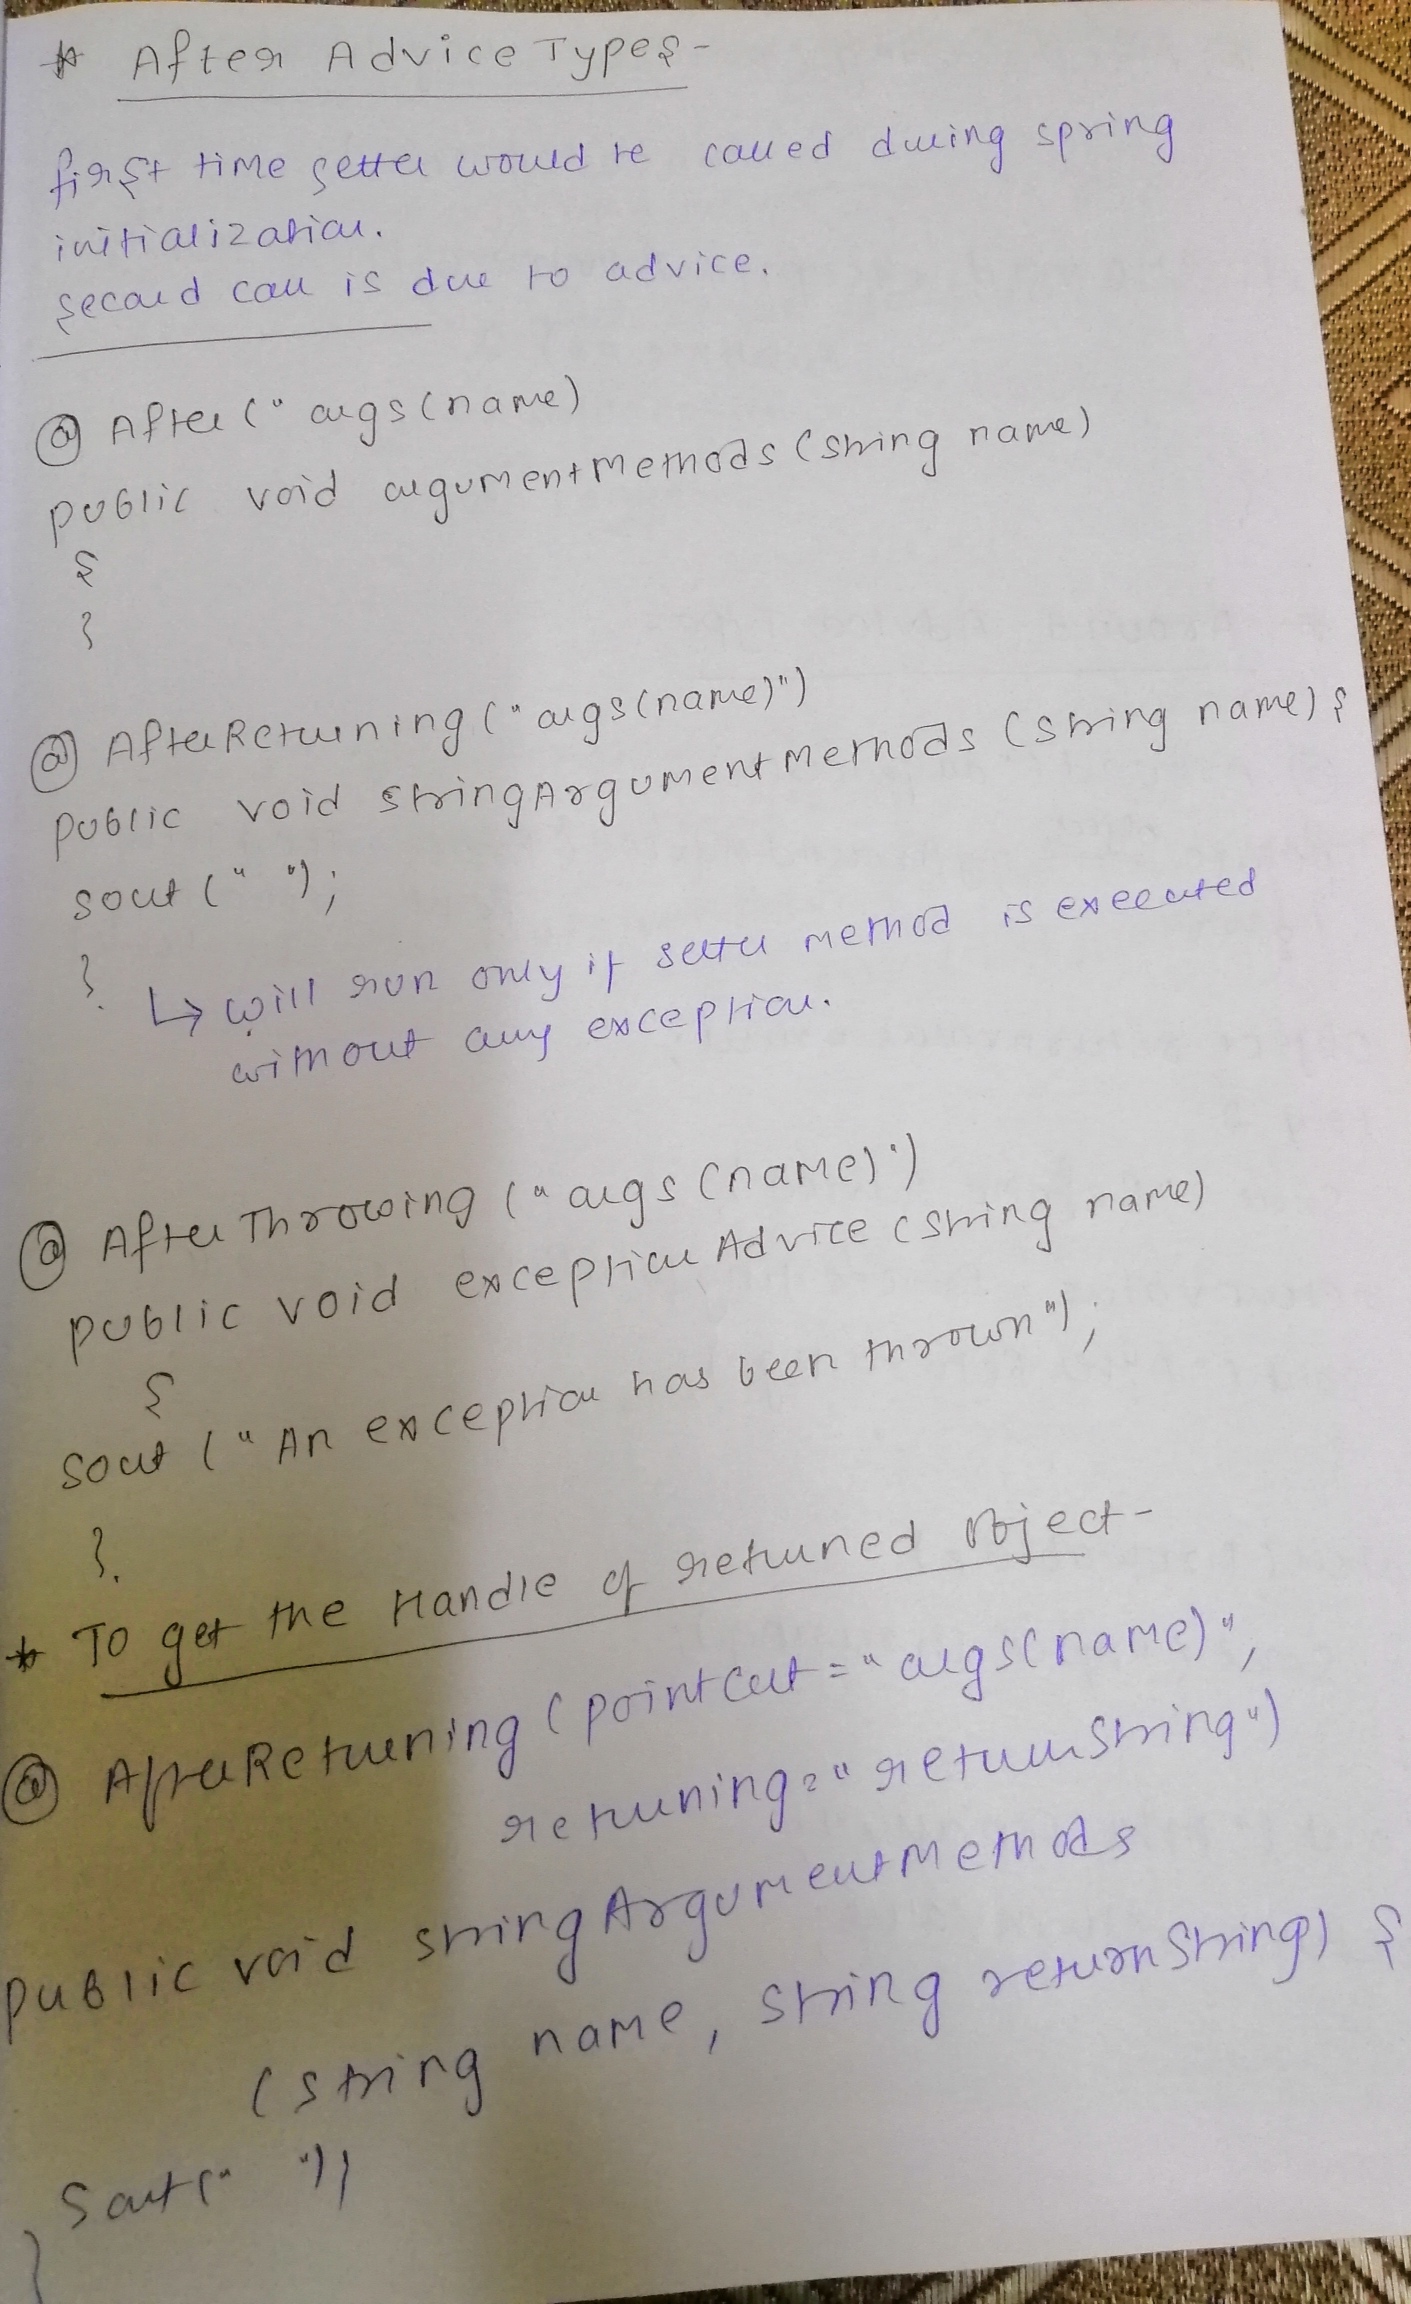 * After Advice Types -
first time setter would be called during spring
initialization.
second call is due to advice.
@ After (" args(name)
public void argumentMethods (String name)
{
}
@ AfterReturning (" args(name)")
public void stringArgumentMethods (String name) {
sout (" ");
}
↳ will run only if setter method is executed
without any exception.
@ AfterThrowing (" args (name)")
public void exceptionAdvice (String name)
{
sout (" An exception has been thrown");
}.
* To get the Handle of returned object -
@ AfterReturning (pointcut = " args(name)",
returning = " returnString")
public void stringArgumentMethods
(String name, String returnString) {
sout (" ");
}